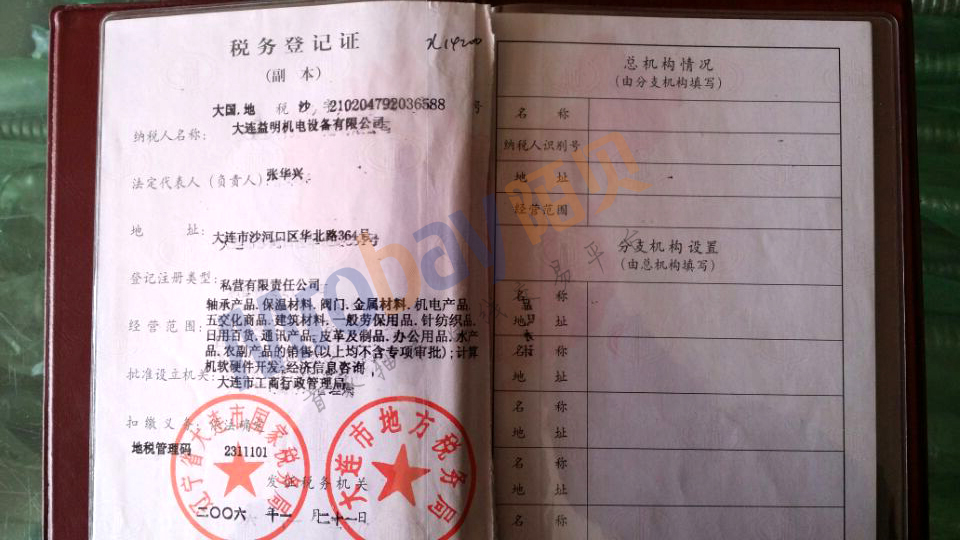 税务登记证
(副 本)
大国.地 税 沙 字 210204792036588 号
纳税人名称: 大连益明机电设备有限公司
法定代表人(负责人) 张华兴
地 址: 大连市沙河口区华北路364号
登记注册类型: 私营有限责任公司
轴承产品.保温材料.阀门.金属材料.机电产品
经营范围: 五交化商品.建筑材料.一般劳保用品.针纺织品.
日用百货.通讯产品;皮革及制品.办公用品.水产
品.农副产品的销售(以上均不含专项审批);计算
机软硬件开发;经济信息咨询
批准设立机关: 大连市工商行政管理局
扣缴义务:
地税管理码 2311101
发证税务机关
二〇〇六 年 一 月 二十一 日
辽宁省大连市国家税务局
大连市地方税务局
总机构情况
(由分支机构填写)
名 称
纳税人识别号
地 址
经营范围
分支机构设置
(由总机构填写)
名 称
地 址
名 称
地 址
名 称
地 址
名 称
地 址
名 称